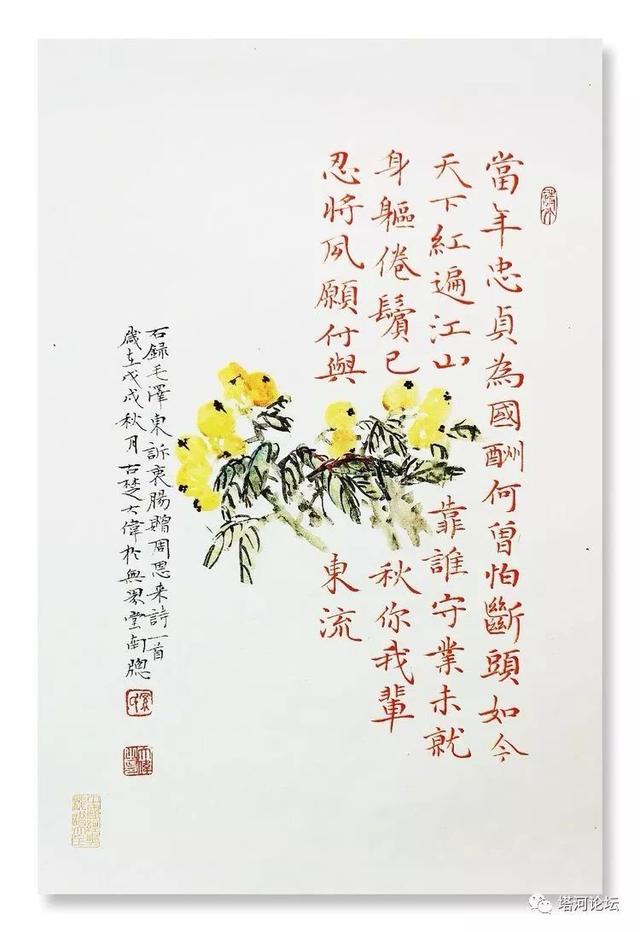 當年忠貞為國酬何曾怕斷頭如今
天下紅遍江山 靠誰守業未就
身軀倦鬢已 秋你我輩
忍將夙願付與 東流
右録毛澤東訴衷腸贈周恩来詩一首
歲在戊戌秋月古楚大偉於無界堂南牕
塔河论坛